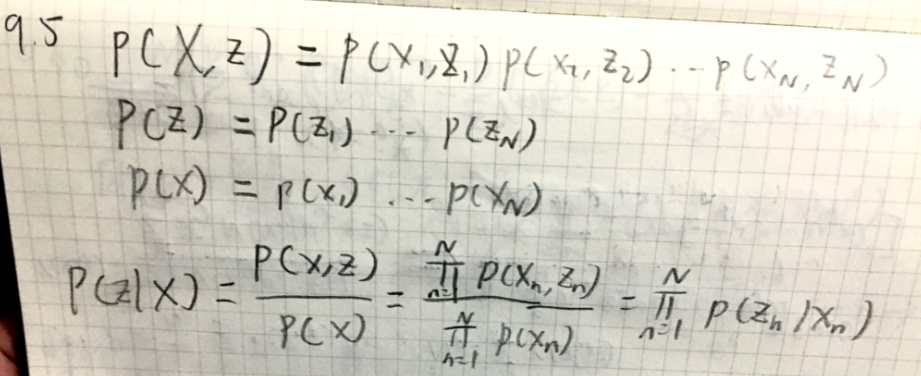 9.5 P(X, Z) = P(x₁, z₁) p(x₂, z₂) ... p(x_N, z_N)
P(Z) = P(z₁) ... p(z_N)
p(X) = p(x₁) ... p(x_N)
P(Z|X) = P(X,Z) / P(X) = ∏_{n=1}^{N} p(x_n, z_n) / ∏_{n=1}^{N} p(x_n) = ∏_{n=1}^{N} p(z_n | x_n)